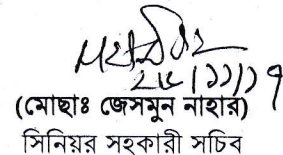 ২৮/১১/১৭
(মোছাঃ জেসমুন নাহার)
সিনিয়র সহকারী সচিব